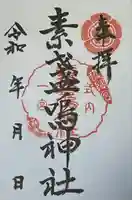 奉拝
素盞嗚神社
令和 年 月 日